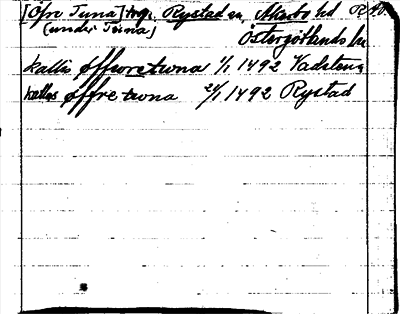 [Öfre Tuna] torp. Rystad sn, Åkerbo hd RAP.
(under Tuna) Östergötlands län
kallas øffwretwna 1/1 1492 Vadstena
kallas øffre twna 21/1 1492 Rystad